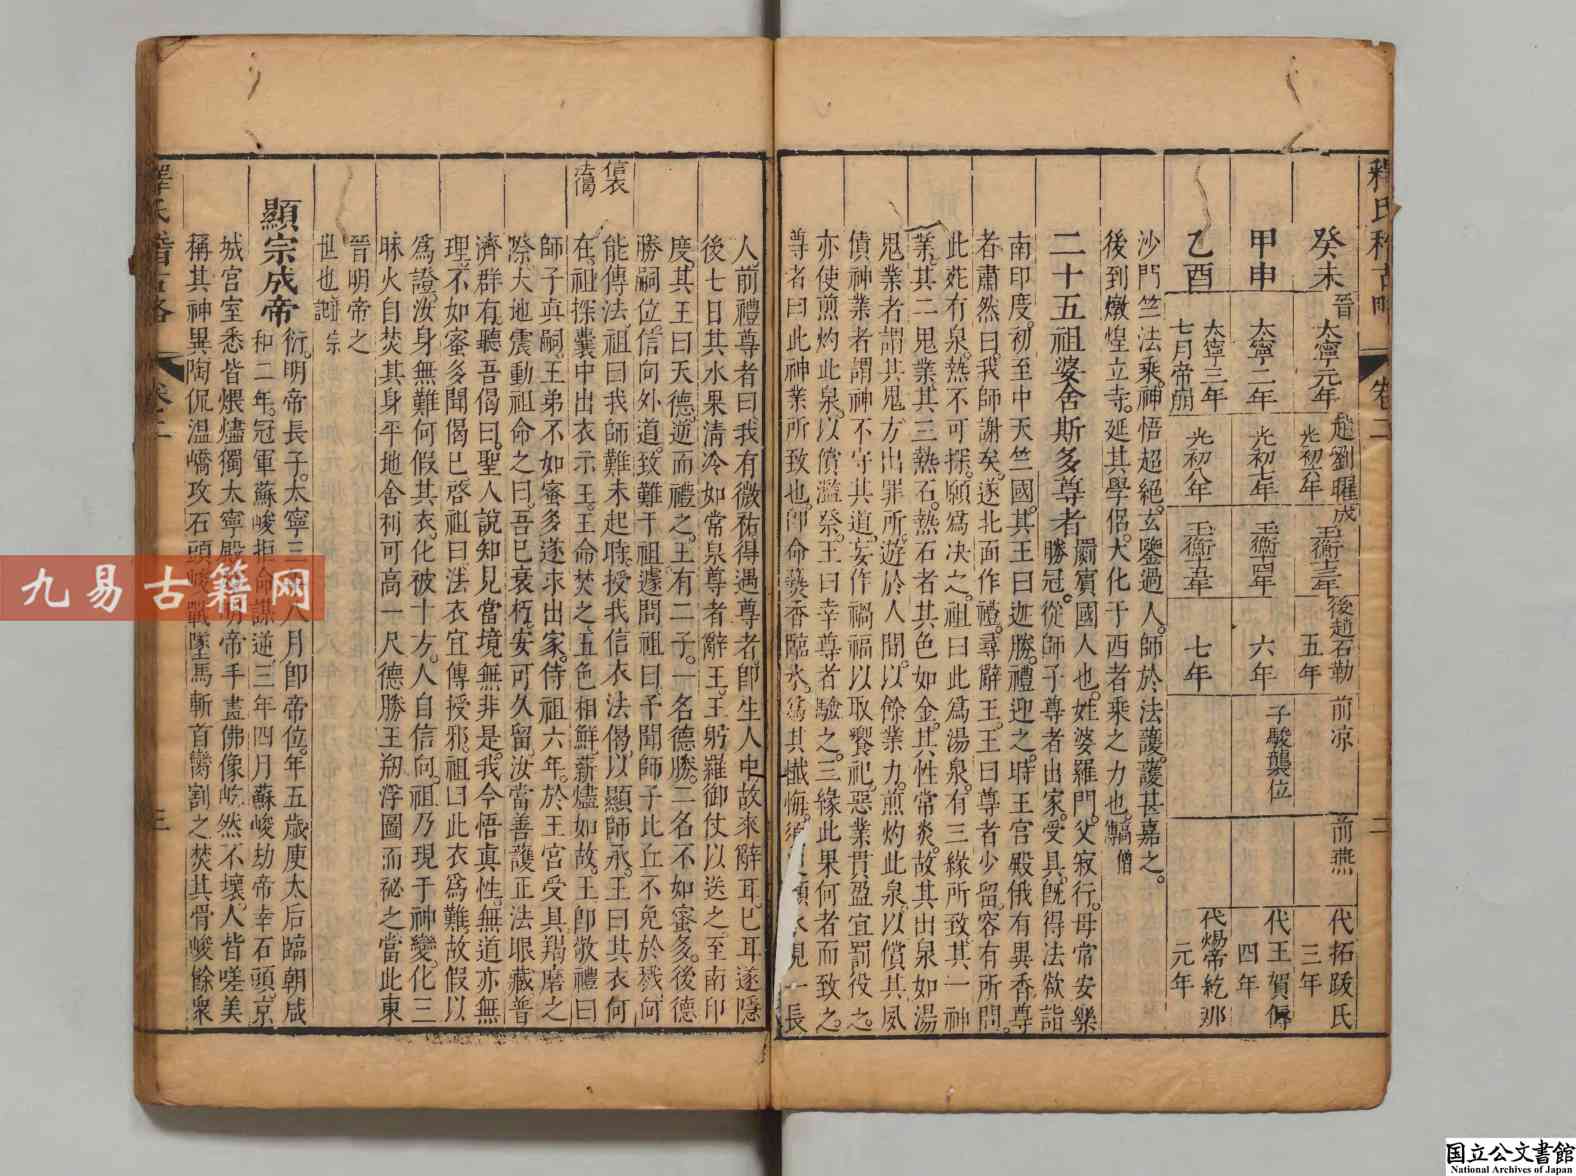 釋氏稽古略 卷二 二
癸未 晉 太寧元年 趙劉曜光初六年 成玉衡十三年 後趙石勒五年 前凉 前燕 代拓跋氏三年
甲申 太寧二年 光初七年 玉衡十四年 六年 子駿襲位 代王賀傉四年
乙酉 太寧三年七月帝崩 光初八年 玉衡十五年 七年 代煬帝紇那元年
沙門竺法乘。神悟超絕。玄鑒過人。師於法護。護甚嘉之。
後到燉煌立寺。延其學侶。大化于西者乘之力也。高僧
二十五祖婆舍斯多尊者 罽賓國人也。姓婆羅門。父寂行。母常安樂
勝冠。從師子尊者出家。受具。旣得法欲詣
南印度。初至中天竺國。其王曰迦勝。禮迎之。時王宮殿俄有異香尊
者肅然曰。我師謝矣。遂北面作禮。尋辭王。王曰尊者少留。容有所問。
此苑有泉。熱不可探。願爲决之。祖曰此爲湯泉。有三緣所致。其一神
業。其二鬼業其三熱石。熱石者其色如金。其性常炎。故其出泉如湯
鬼業者謂其鬼方出罪所。遊於人間。以餘業力。煎灼此泉。以償其夙
債神業者謂神不守其道。妄作禍福以取饗祀。惡業貫盈宜罰役之。
亦使煎灼此泉。以償濫祭。王曰幸尊者驗之。三緣此果何者而致之。
尊者曰此神業所致也。卽命爇香臨水。爲其懺悔。須臾泉水見一長
人。前禮尊者曰。我有微祐得遇尊者。卽生人中。故來辭耳。已耳遂隱
後七日其水果清冷如常泉尊者辭王。王躬羅御仗以送之至南印
度。其王曰天德。迎而禮之。王有二子。一名德勝。二名不如蜜多。後德
勝嗣位。信向外道。致難于祖。遽問祖曰。予聞師子比丘不免於戮。何
能傳法。祖曰我師難未起時。授我信衣法偈。以顯師承。王曰其衣何
信衣法偈
在。祖探囊中出衣示王。王命焚之。五色相鮮。薪燼如故。王卽敬禮曰
師子真嗣。王弟不如蜜多遂求出家。侍祖六年。於王宮受具羯磨之
際。大地震動。祖命之曰。吾已衰朽。安可久留汝當善護正法眼藏普
濟群有。聽吾偈曰。聖人說知見當境無非是。我今悟真性。無道亦無
理。不如蜜多聞偈已。啓祖曰。法衣宜傳授邪。祖曰此衣爲難。故假以
爲證。汝身無難何假其衣。化被十方。人自信向。祖乃現于神變。化三
昧火自焚其身。平地舍利可高一尺。德勝王刱浮圖而秘之當此東
晉明帝之
世也 正宗
顯宗成帝 衍。明帝長子。太寧三年八月卽帝位。年五歲庾太后臨朝咸
和二年。冠軍蘇峻拒命謀逆。三年四月蘇峻劫帝幸石頭。京
城宮室悉皆煨燼獨太寧殿明帝手畫佛像屹然不壞。人皆嗟美
稱其神異陶侃溫嶠攻石頭。峻戰墜馬斬首臠割之焚其骨峻餘衆
釋氏稽古略 卷二 三
九易古籍网
国立公文書館
National Archives of Japan